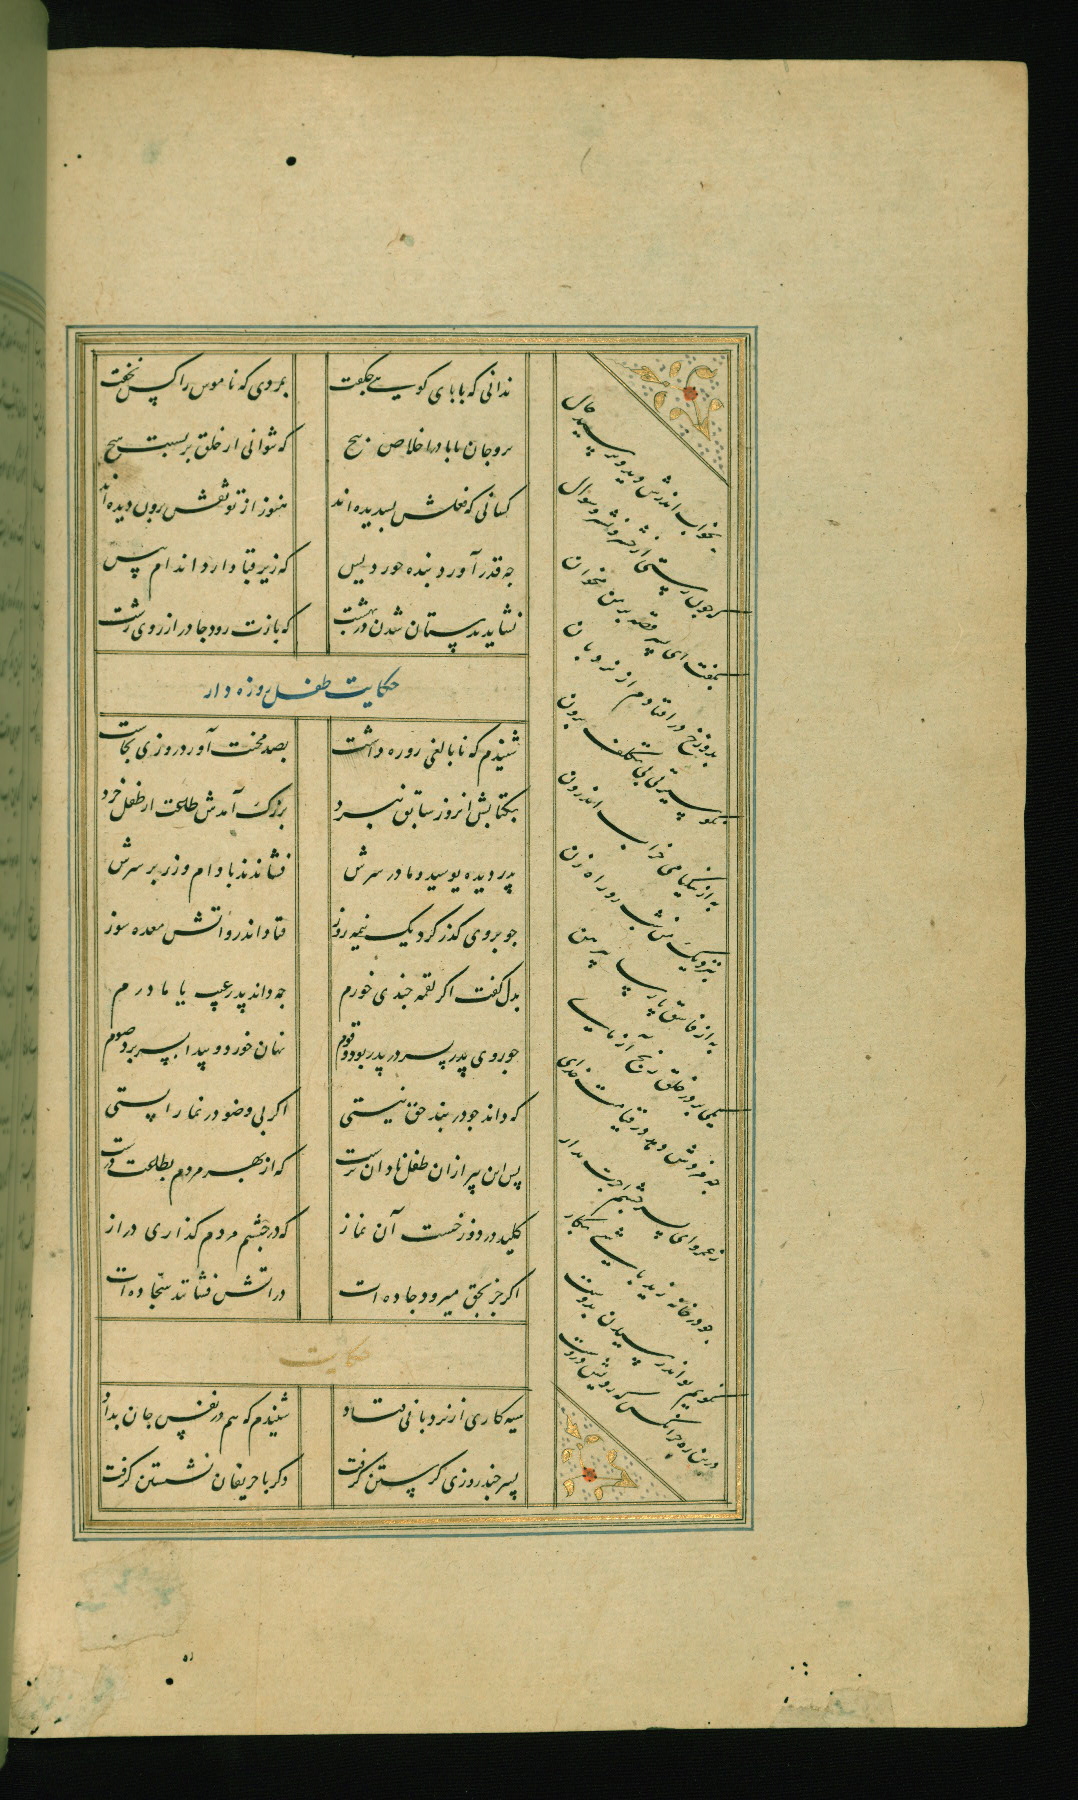 ندانی که بابای کوهی چه گفت بمردی که ناموس را کس نخفت
برو جان بابا در اخلاص پیچ که نتوانی از خلق بربست هیچ
کسانی که فعلش پسندیده اند هنوز از تو نقش برون دیده اند
چه قدر آورد بنده حوردیس که زیر قبا دارد اندام پیس
نشاید بدستان شدن در بهشت که بازت رود چادر از روی زشت
حکایت طفل روزه دار
شنیدم که نابالغی روزه داشت بصد محنت آورد روزی بچاشت
بکتابش آنروز سابق نبرد بزرگ آمدش طاعت از طفل خرد
پدر دیده بوسید و مادر سرش فشاندند بادام و زر بر سرش
چو بر وی گذر کرد یک نیمه روز فتاد اندرو آتش معده سوز
بدل گفت اگر لقمه چندی خورم چه داند پدر غیب یا مادرم
چو روی پسر در پدر بود و قوم نهان خورد و پیدا بسر برد صوم
که داند چو در بند حق نیستی اگر بی وضو در نماز ایستی
پس این پیر از آن طفل نادان ترست که از بهر مردم بطاعت درست
کلید در دوزخست آن نماز که در چشم مردم گذاری دراز
اگر جز بحق میرود جاده ات در آتش فشانند سجاده ات
حکایت
سیه کاری از نردبانی فتاد شنیدم که هم در نفس جان بداد
پسر چند روزی گرستن گرفت دگر با حریفان نشستن گرفت
بخواب اندرش دید و پرسید حال
که چون رستی از حشر و نشر و سوال
بگفت ای پسر قصه بر من مخوان
بدوزخ در افتادم از نردبان
نکو سیرتی بی تکلف برون
به از نیکنامی خراب اندرون
بنزدیک من شب رو راه زن
به از فاسق پارسا پیرهن
یکی بر در خلق رنج آزمای
چه مزدش دهد در قیامت خدای
ز عمرو ای پسر چشم اجرت مدار
چو در خانه زید باشی بکار
نگویم تواند رسیدن بدوست
درین ره جز آنکس که رویش دروست